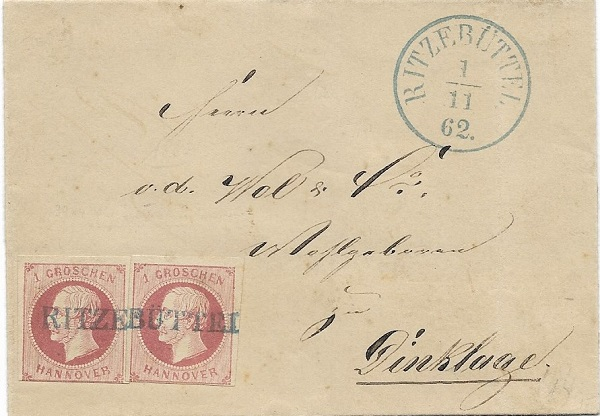 RITZEBÜTTEL
1
11
62.
Herrn
v. d. Wol & Co.
Wohlgeboren
zu
Dinklage.
1 GROSCHEN 1 GROSCHEN
RITZEBÜTTEL
HANNOVER HANNOVER